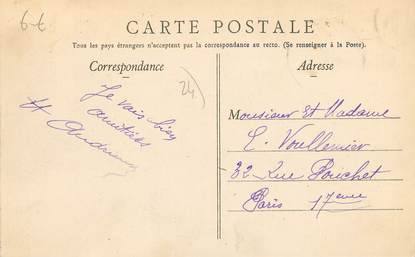 6-6
CARTE POSTALE
Tous les pays étrangers n'acceptent pas la correspondance au recto. (Se renseigner à la Poste).
Correspondance
Adresse
24
Je vais bien
amitiés
Monsieur et Madame
E. Voullemier
32 Rue Pouchet
Paris 17eme